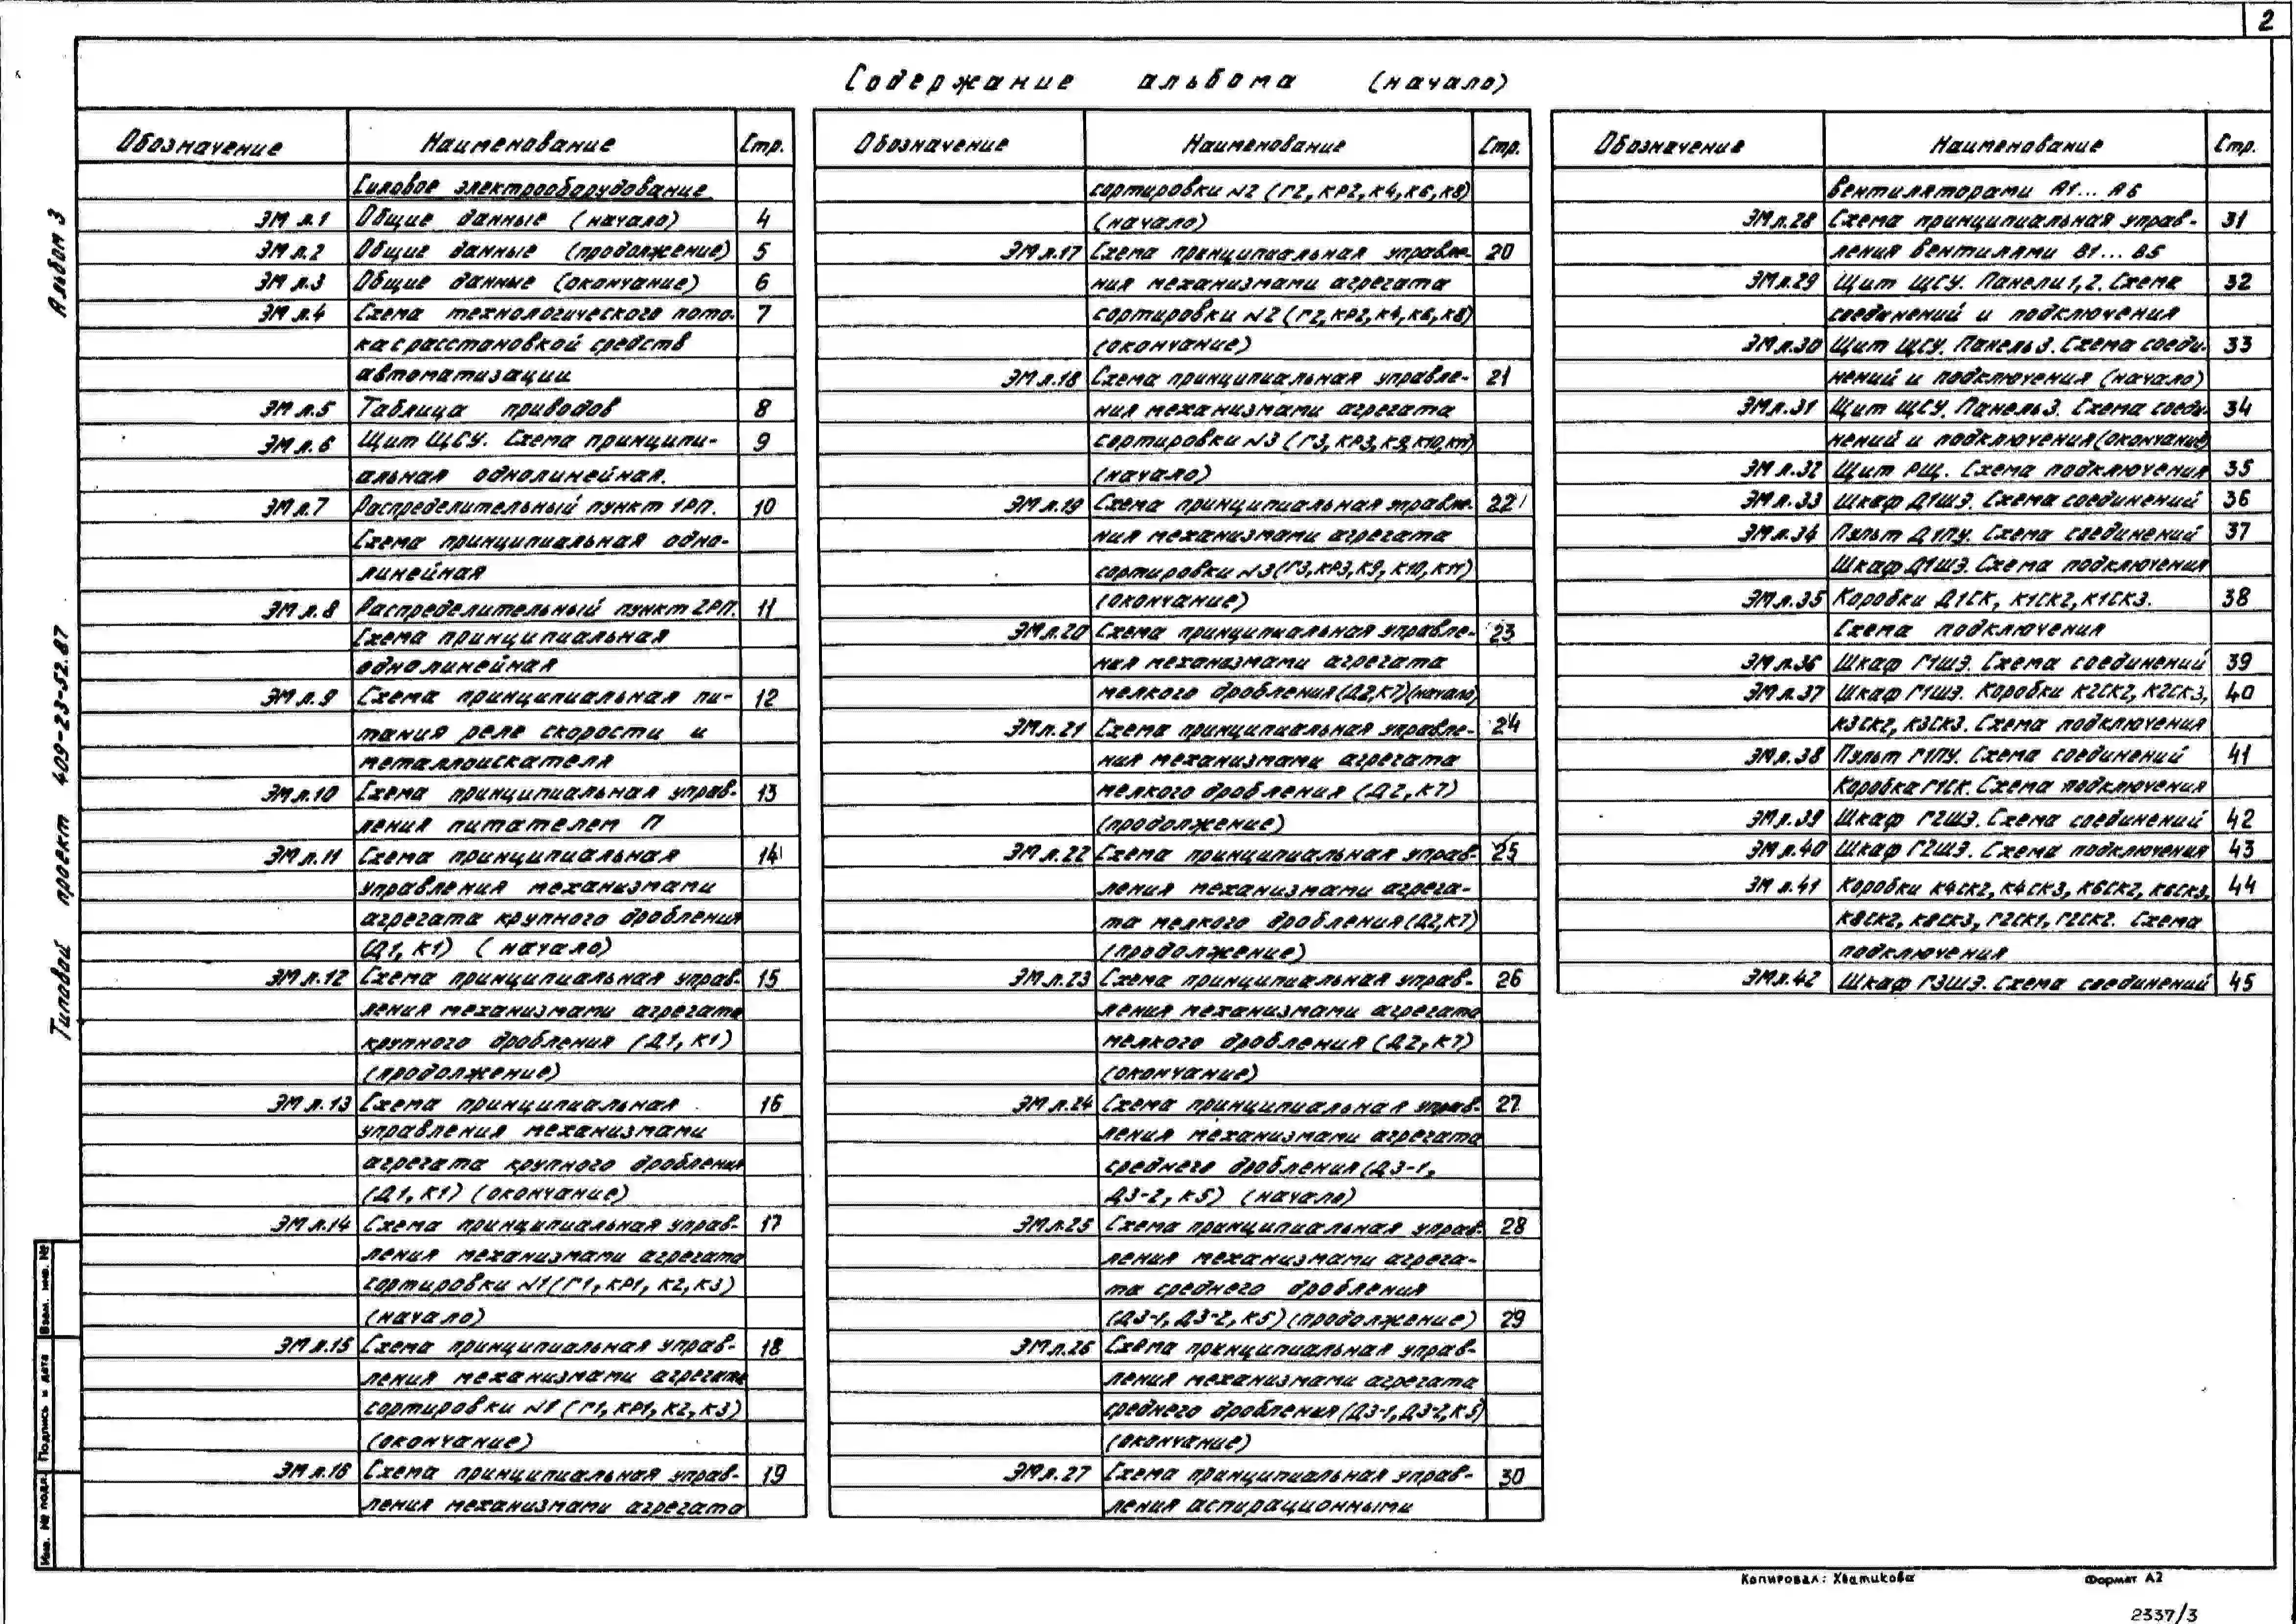 2
Содержание альбома (начало)
Обозначение Наименование Стр.
Силовое электрооборудование
ЭМ л.1 Общие данные (начало) 4
ЭМ л.2 Общие данные (продолжение) 5
ЭМ л.3 Общие данные (окончание) 6
ЭМ л.4 Схема технологического пото- 7
ка с расстановкой средств
автоматизации
ЭМ л.5 Таблица приводов 8
ЭМ л.6 Щит ЩСУ. Схема принципи- 9
альная однолинейная.
ЭМ л.7 Распределительный пункт 1РП. 10
Схема принципиальная одно-
линейная
ЭМ л.8 Распределительный пункт 2РП. 11
Схема принципиальная
однолинейная
ЭМ л.9 Схема принципиальная пи- 12
тания реле скорости и
металлоискателя
ЭМ л.10 Схема принципиальная управ- 13
ления питателем П
ЭМ л.11 Схема принципиальная 14
управления механизмами
агрегата крупного дробления
(Д1, К1) (начало)
ЭМ л.12 Схема принципиальная управ- 15
ления механизмами агрегата
крупного дробления (Д1, К1)
(продолжение)
ЭМ л.13 Схема принципиальная 16
управления механизмами
агрегата крупного дробления
(Д1, К1) (окончание)
ЭМ л.14 Схема принципиальная управ- 17
ления механизмами агрегата
сортировки №1 (Г1, КР1, К2, К3)
(начало)
ЭМ л.15 Схема принципиальная управ- 18
ления механизмами агрегата
сортировки №1 (Г1, КР1, К2, К3)
(окончание)
ЭМ л.16 Схема принципиальная управ- 19
ления механизмами агрегата
Обозначение Наименование Стр.
сортировки №2 (Г2, КР2, К4, К6, К8)
(начало)
ЭМ л.17 Схема принципиальная управле- 20
ния механизмами агрегата
сортировки №2 (Г2, КР2, К4, К6, К8)
(окончание)
ЭМ л.18 Схема принципиальная управле- 21
ния механизмами агрегата
сортировки №3 (Г3, КР3, К9, К10, К11)
(начало)
ЭМ л.19 Схема принципиальная управле- 22
ния механизмами агрегата
сортировки №3 (Г3, КР3, К9, К10, К11)
(окончание)
ЭМ л.20 Схема принципиальная управле- 23
ния механизмами агрегата
мелкого дробления (Д2, К7) (начало)
ЭМ л.21 Схема принципиальная управле- 24
ния механизмами агрегата
мелкого дробления (Д2, К7)
(продолжение)
ЭМ л.22 Схема принципиальная управ- 25
ления механизмами агрега-
та мелкого дробления (Д2, К7)
(продолжение)
ЭМ л.23 Схема принципиальная управ- 26
ления механизмами агрегата
мелкого дробления (Д2, К7)
(окончание)
ЭМ л.24 Схема принципиальная управ- 27
ления механизмами агрегата
среднего дробления (Д3-1,
Д3-2, К5) (начало)
ЭМ л.25 Схема принципиальная управ- 28
ления механизмами агрега-
та среднего дробления
(Д3-1, Д3-2, К5) (продолжение) 29
ЭМ л.26 Схема принципиальная управ-
ления механизмами агрегата
среднего дробления (Д3-1, Д3-2, К5)
(окончание)
ЭМ л.27 Схема принципиальная управ- 30
ления аспирационными
Обозначение Наименование Стр.
вентиляторами А1... А6
ЭМ л.28 Схема принципиальная управ- 31
ления вентилями В1... В5
ЭМ л.29 Щит ЩСУ. Панели 1, 2. Схема 32
соединений и подключения
ЭМ л.30 Щит ЩСУ. Панель 3. Схема соеди- 33
нений и подключения (начало)
ЭМ л.31 Щит ЩСУ. Панель 3. Схема соеди- 34
нений и подключения (окончание)
ЭМ л.32 Щит РЩ. Схема подключения 35
ЭМ л.33 Шкаф Д1ШЭ. Схема соединений 36
ЭМ л.34 Пульт Д1ПУ. Схема соединений 37
Шкаф Д1ШЭ. Схема подключения
ЭМ л.35 Коробки Д1СК, К1СК2, К1СК3. 38
Схема подключения
ЭМ л.36 Шкаф Г1ШЭ. Схема соединений 39
ЭМ л.37 Шкаф Г1ШЭ. Коробки К2СК2, К2СК3, 40
К3СК2, К3СК3. Схема подключения
ЭМ л.38 Пульт Г1ПУ. Схема соединений 41
Коробка Г1СК. Схема подключения
ЭМ л.39 Шкаф Г2ШЭ. Схема соединений 42
ЭМ л.40 Шкаф Г2ШЭ. Схема подключения 43
ЭМ л.41 Коробки К4СК2, К4СК3, К6СК2, К6СК3, 44
К8СК2, К8СК3, Г2СК1, Г2СК2. Схема
подключения
ЭМ л.42 Шкаф Г3ШЭ. Схема соединений 45
Альбом 3
Типовой проект 409-23-52.87
Взам. инв. №
Подпись и дата
Инв. № подл.
Копировал: Хватикова Формат А2
2337/3